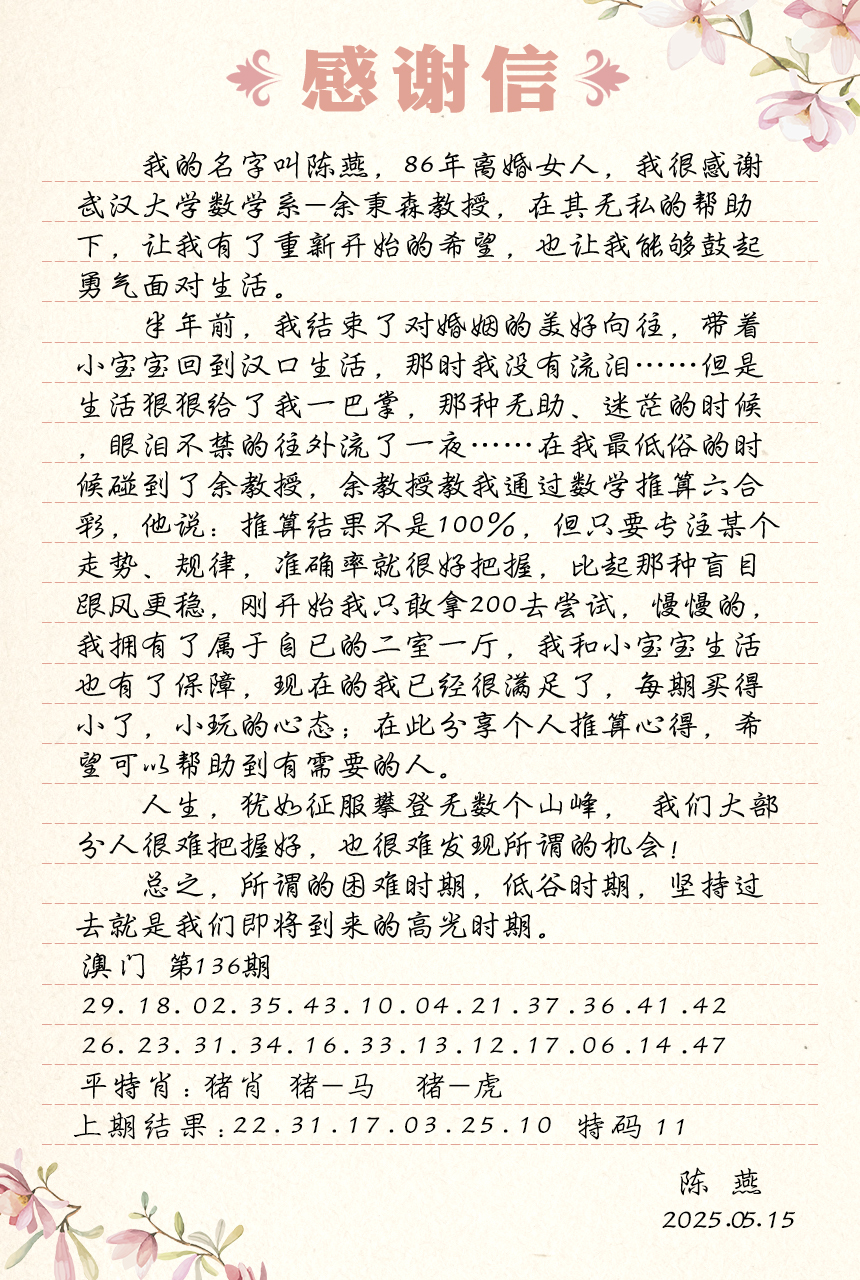 感谢信
我的名字叫陈燕，86年离婚女人，我很感谢
武汉大学数学系—余秉森教授，在其无私的帮助
下，让我有了重新开始的希望，也让我能够鼓起
勇气面对生活。
半年前，我结束了对婚姻的美好向往，带着
小宝宝回到汉口生活，那时我没有流泪……但是
生活狠狠给了我一巴掌，那种无助、迷茫的时候
，眼泪不禁的往外流了一夜……在我最低俗的时
候碰到了余教授，余教授教我通过数学推算六合
彩，他说：推算结果不是100%，但只要专注某个
走势、规律，准确率就很好把握，比起那种盲目
跟风更稳，刚开始我只敢拿200去尝试，慢慢的，
我拥有了属于自已的二室一厅，我和小宝宝生活
也有了保障，现在的我已经很满足了，每期买得
小了，小玩的心态；在此分享个人推算心得，希
望可以帮助到有需要的人。
人生，犹如征服攀登无数个山峰， 我们大部
分人很难把握好，也很难发现所谓的机会！
总之，所谓的困难时期，低谷时期，坚持过
去就是我们即将到来的高光时期。
澳门 第136期
29.18.02.35.43.10.04.21.37.36.41.42
26.23.31.34.16.33.13.12.17.06.14.47
平特肖：猪肖 猪—马 猪—虎
上期结果：22.31.17.03.25.10 特码 11
陈 燕
2025.05.15